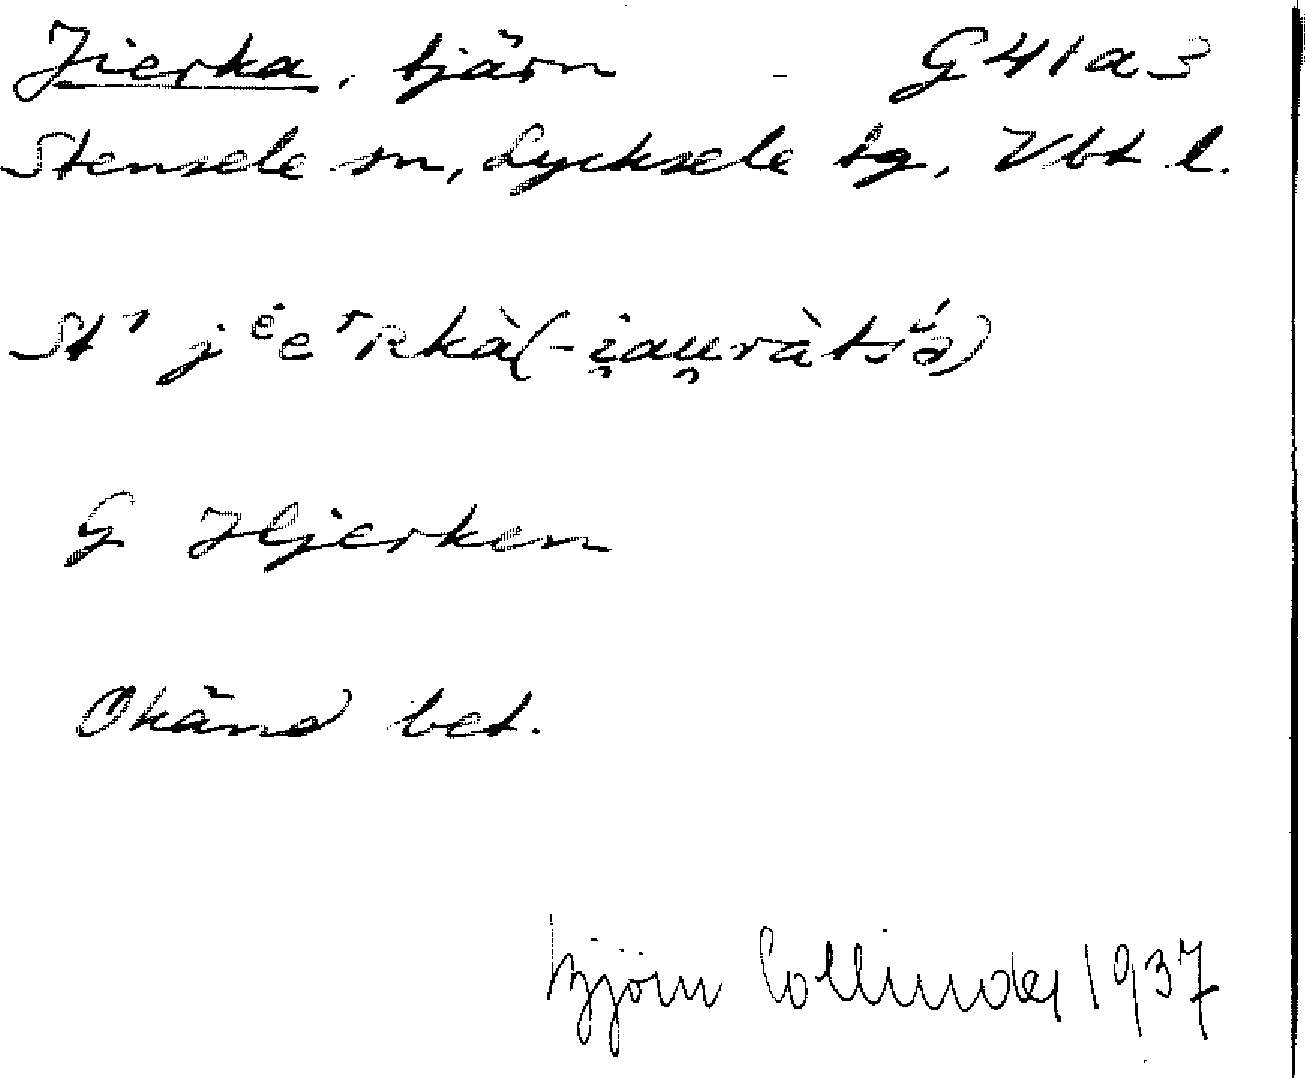 Jierka, tjärn - G41a3
Stensele sn, Lycksele tg, Vbt l.
St¹ j
G Hjerken
Okänd bet.
Björn Collinder 1937